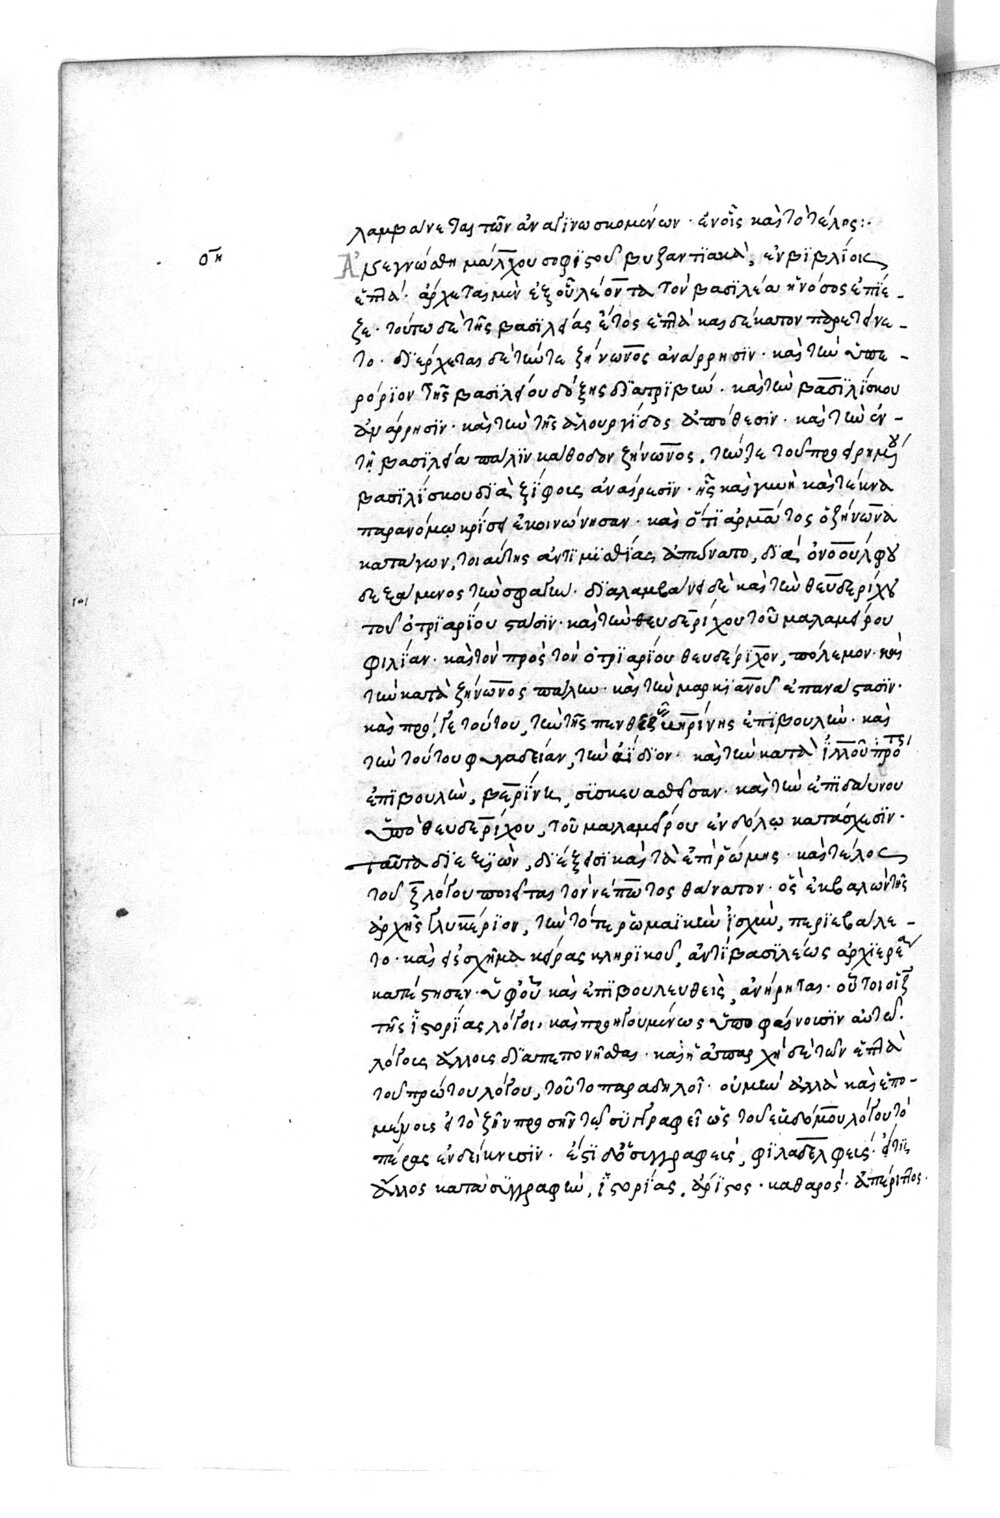 λαμβάνεται τῶν ἀναγινωσκομένων · ἐν οἷς καὶ τὸ τέλος :·
οη
Ἀνεγνώσθη μάλχου σοφιστοῦ βυζαντιακὰ, ἐν βιβλίοις
ἑπτά · ἄρχεται μὲν ἐξ οὗ λέοντα τὸν βασιλέα ἡ νόσος ἐπίε-
ζε · τούτω δὲ τῆς βασιλείας ἔτος ἑπτὰ καὶ δέκατον παρετείνε-
το · διέρχεται δὲ τήν τε ζήνωνος ἀνάρρησιν · καὶ τὴν ὑπε-
ρόριον τῆς βασιλείου δόξης διατριβήν · καὶ τὴν βασιλίσκου
ἀνάρρησιν · καὶ τὴν τῆς ἁλουργίδος ἀπόθεσιν · καὶ τὴν ἐν
τῇ βασιλείᾳ πάλιν κάθοδον ζήνωνος, τήν τε τοῦ προειρημένου
βασιλίσκου διὰ ξίφους ἀναίρεσιν · ἧς καὶ γυνὴ καὶ τέκνα
παρανόμῳ κρίσει ἐκοινώνησαν · καὶ ὅτι ἁρμάτος ὁ ζήνωνα
καταγων, τοιαύτης ἀντιμισθίας ἀπώνατο, διὰ ὀνοούλφου
δεξάμενος τὴν σφαγήν · διαλαμβάνει δὲ καὶ τὴν θευδερίχου
τοῦ ὀτριαρίου στάσιν · καὶ τὴν θευδερίχου τοῦ μαλαμείρου
φιλίαν · καὶ τὸν πρὸς τὸν ὀτριαρίου θευδέριχον, πόλεμον · καὶ
τὴν κατὰ ζήνωνος πάλιν · καὶ τὴν μαρκιανοῦ ἐπανάστασιν ·
καὶ πρό γε τούτου, τὴν τῆς πενθερᾶς βηρίνης ἐπιβουλήν · καὶ
τὴν τούτου φυγαδείαν, τὴν ἀΐδιον · καὶ τὴν κατὰ ἰλλοῦ πρότερον
ἐπιβουλὴν, βερίνης, συσκευασθεῖσαν · καὶ τὴν ἐπιδάμνου
ὑπὸ θευδερίχου, τοῦ μαλαμείρου ἐν δόλῳ κατάσχεσιν ·
ταῦτα διεξιὼν, διέξεισι καὶ τὰ ἐπὶ ῥώμης · καὶ τέλος
τοῦ ζ λόγου ποιεῖται τὸν νέπωτος θάνατον · ὃς ἐκβαλὼν τῆς
ἀρχῆς γλυκέριον, τήν τότε ῥωμαϊκὴν ἰσχὺν, περιεβάλε-
το · καὶ εἰς σχῆμα κείρας κληρικοῦ, ἀντὶ βασιλέως ἀρχιερέα
κατέστησεν · ὑφ' οὗ καὶ ἐπιβουλευθεὶς, ἀνῄρηται · οὗτοι οἱ ζ
τῆς ἱστορίας λόγοι, καὶ προηγουμένως ὑποφαίνουσιν αὐτῷ
λόγους ἄλλους διαπεπονῆσθαι · καὶ ἡ ἀπαρχὴ δὲ τῶν ἑπτὰ
τοῦ πρώτου λόγου, τοῦτο παραδηλοῖ · οὐ μὴν ἀλλὰ καὶ ἑπο-
μένους εἰ τὸ ζῆν προσῆν τῷ συγγραφεῖ ὡς τοῦ ἑβδόμου λόγου τὸ
πέρας ἐνδείκνυσιν · ἔστι δ' ὁ συγγραφεὺς, φιλαδελφεύς · εἴ τις
ἄλλος κατὰ συγγραφὴν, ἱστορίας, ἄριστος · καθαρός · ἀπέριττος ·